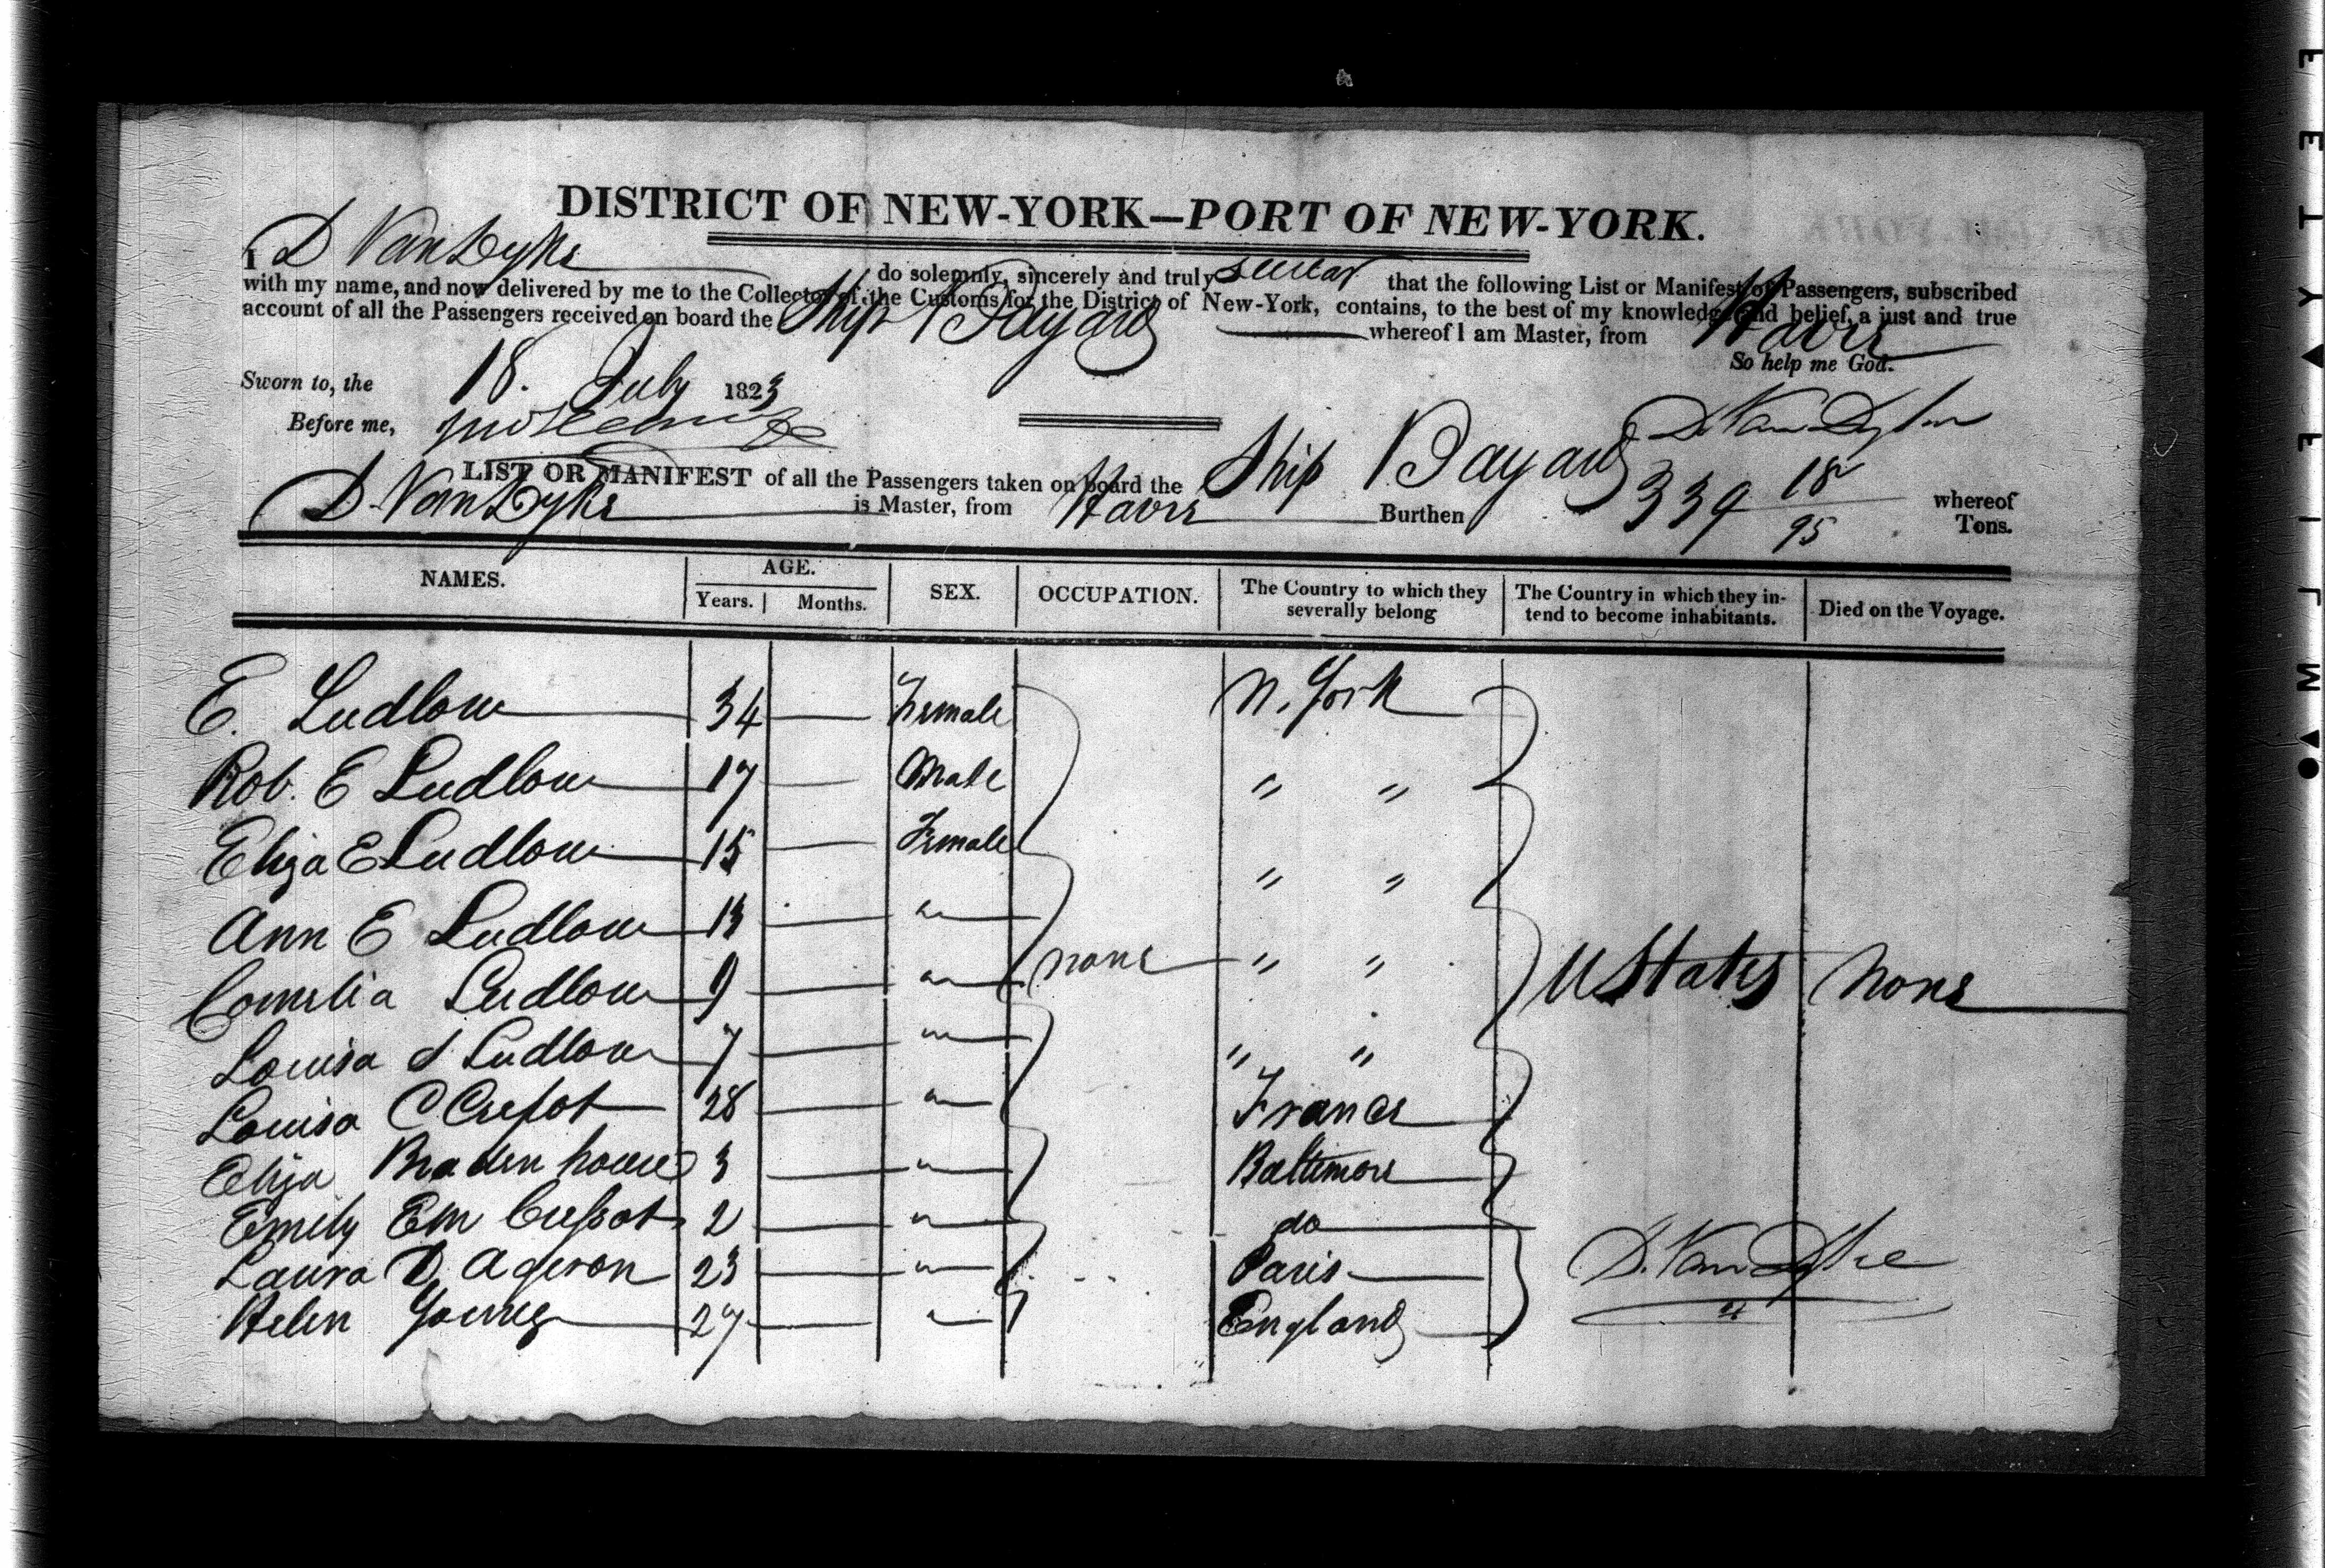 DISTRICT OF NEW-YORK—PORT OF NEW-YORK.
I D Van Dyke do solemnly, sincerely and truly swear that the following List or Manifest of Passengers, subscribed
with my name, and now delivered by me to the Collector of the Customs for the District of New-York, contains, to the best of my knowledge and belief, a just and true
account of all the Passengers received on board the Ship Bayard whereof I am Master, from Havre
So help me God.
Sworn to, the 18. July 1823
Before me, D. Van Dyke
LIST OR MANIFEST of all the Passengers taken on board the Ship Bayard whereof
D. Van Dyke is Master, from Havre Burthen 339 18/95 Tons.
NAMES. AGE. Years. Months. SEX. OCCUPATION. The Country to which they severally belong The Country in which they intend to become inhabitants. Died on the Voyage.
E. Ludlow 34 — Female N. York
Rob. E Ludlow 17 — Male " "
Eliza E Ludlow 15 — Female " "
Ann E Ludlow 13 — " none " " U States none
Cornelia Ludlow 9 — "
Louisa S Ludlow 7 — " " "
Louisa C 28 — " France
Eliza 3 — " Baltimore
Emily Em 2 — " do
Laura D 23 — " Paris
Helen Young 27 — " England
D. Van Dyke